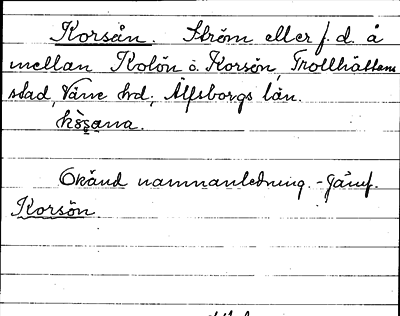 Korsån. Ström eller f. d. å
mellan Kolön o. Korsön, Trollhättans
stad, Väne hd, Älfsborgs län.
kòs̥ana.
Okänd namnanledning. - Jämf.
Korsön.